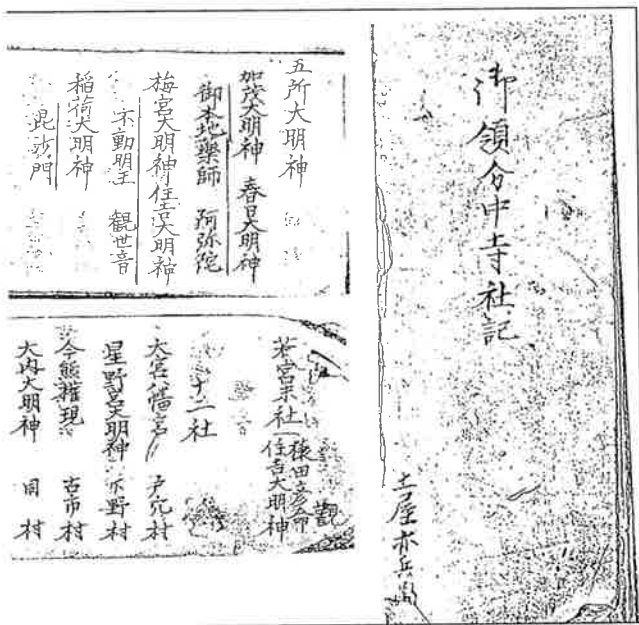 御領分中寺社記
土屋亦兵衛
五所大明神
加茂大明神 春日大明神
御本地薬師 阿弥陀
梅宮大明神 住吉大明神
不動明王 観世音
稲荷大明神
毘沙門
観
猿田彦命
若宮末社 住吉大明神
十二社
大宮八幡宮 戸穴村
星野宮大明神 下野村
今熊権現 古市村
大内大明神 同村